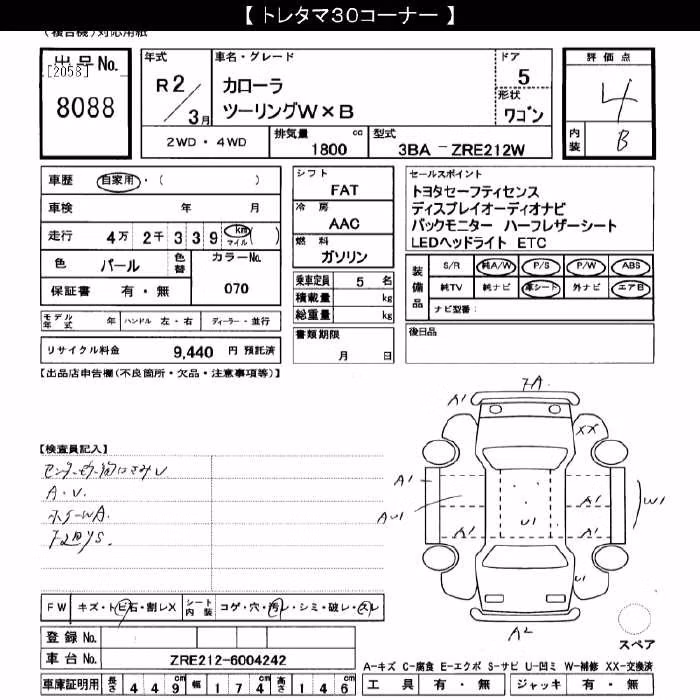 【 トレタマ30コーナー 】
(複合機)対応用紙
出品No.
[2058]
8088
年式
R2/3月
車名・グレード
カローラ
ツーリングW×B
ドア
5
形状
ワゴン
評価点
4
内装
B
2WD ・ 4WD
排気量 1800 cc
型式 3BA －ZRE212W
車歴 自家用・( )
車検 年 月
走行 4万 2千 3 3 9 km マイル ( )
色 パール 色替 カラーNo. 070
保証書 有・無
モデル年式 年 ハンドル 左・右 ディーラー・並行
リサイクル料金 9,440 円 預託済
シフト
FAT
冷房
AAC
燃料
ガソリン
乗車定員 5 名
積載量 kg
総重量 kg
書類期限
月 日
セールスポイント
トヨタセーフティセンス
ディスプレイオーディオナビ
バックモニター ハーフレザーシート
LEDヘッドライト ETC
装備品
S/R 純A/W P/S P/W ABS
純TV 純ナビ 革シート 外ナビ エアB
ナビ型番:
後日品
【出品店申告欄(不良箇所・欠品・注意事項等)】
【検査員記入】
A・U.
FW キズ・トビ石・割レX シート内装 コゲ・穴・汚レ・シミ・破レ・スレ
登録 No.
車台 No. ZRE212-6004242
車庫証明用 長さ 4 4 9 cm 幅 1 7 4 cm 高さ 1 4 6 cm
7A.
A1
XX
A1
AU1
A1
U1
A1
A1
W1
U1
A2
スペア
A-キズ C-腐食 E-エクボ S-サビ U-凹ミ W-補修 XX-交換済
工具 有・無 ジャッキ 有・無